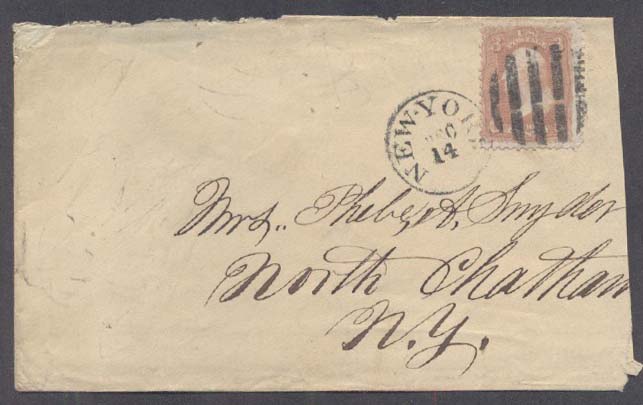 3
NEW-YORK
DEC
14
Mrs. Phebe A. Snyder
North Chatham
N.Y.